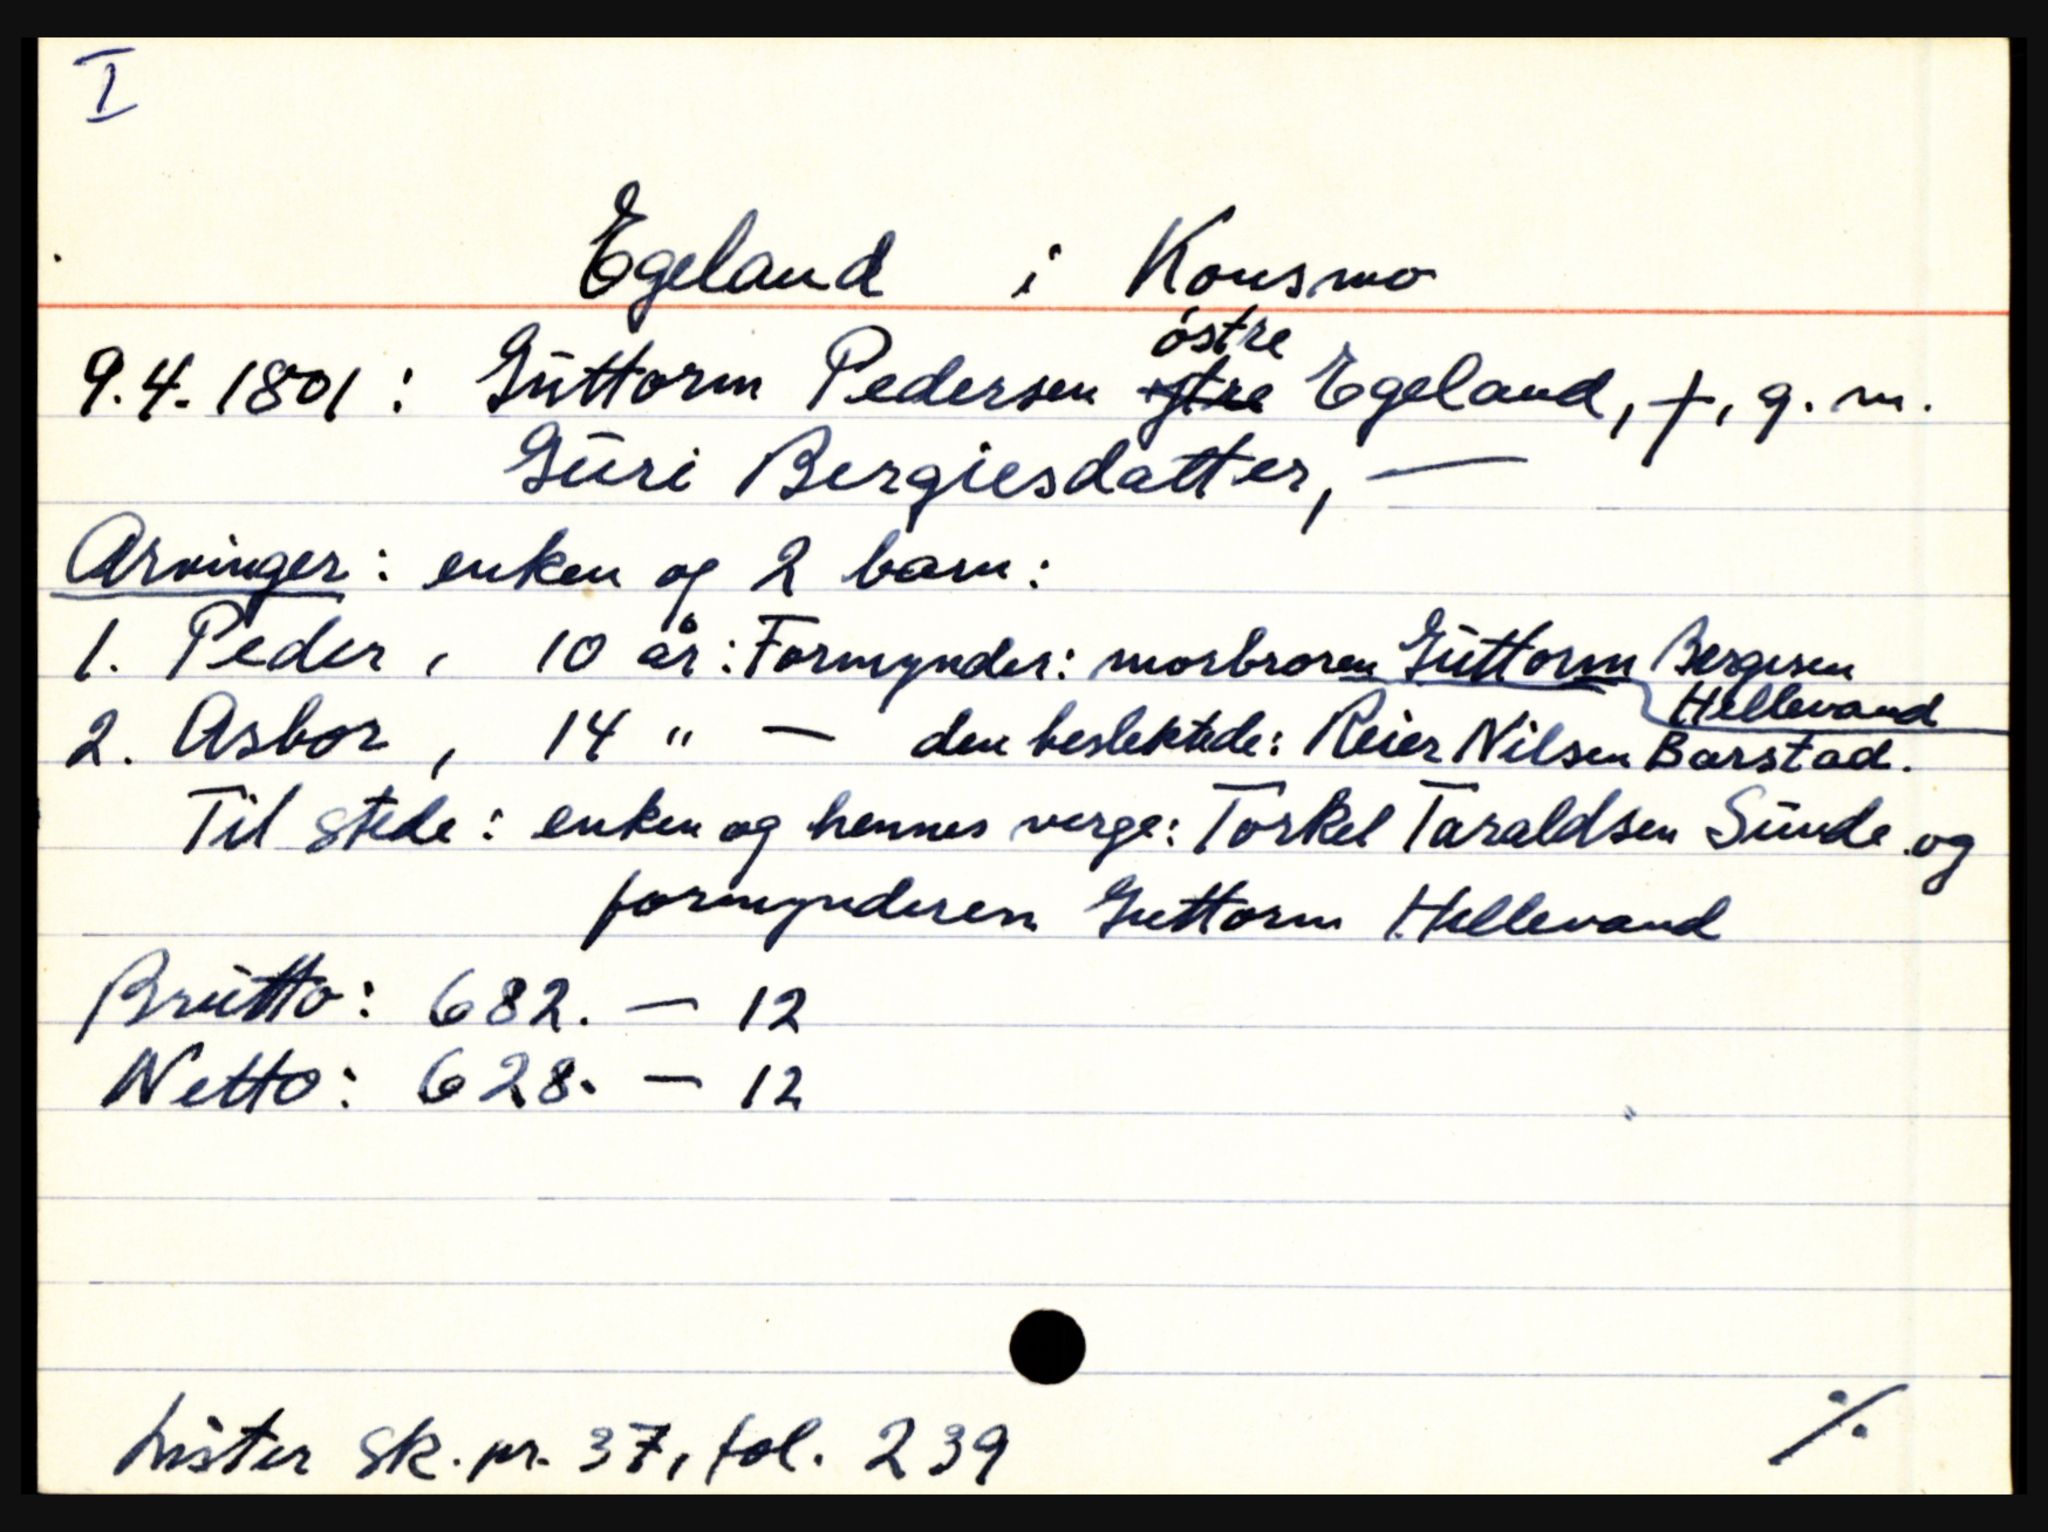 I
Egeland i Konsmo
9.4.1801: Guttorm Pedersen ytre østre Egeland, †, g. m.
Guri Bergiesdatter, —
Arvinger: enken og 2 barn:
1. Peder, 10 år: Formynder: morbroren Guttorm Bergesen Hellevand
2. Asbor, 14 " — den beslektede: Reier Nilsen Barstad.
Til stede: enken og hennes verge: Torkel Taraldsen Sunde og
formynderen Guttorm Hellevand
Brutto: 682. — 12
Netto: 628. — 12
Lister sk. pr. 37, fol. 239
./.